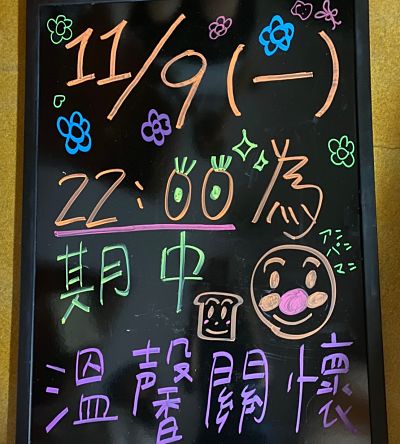 11/9(一)
22:00為
期中
アンパンマン
溫馨關懷